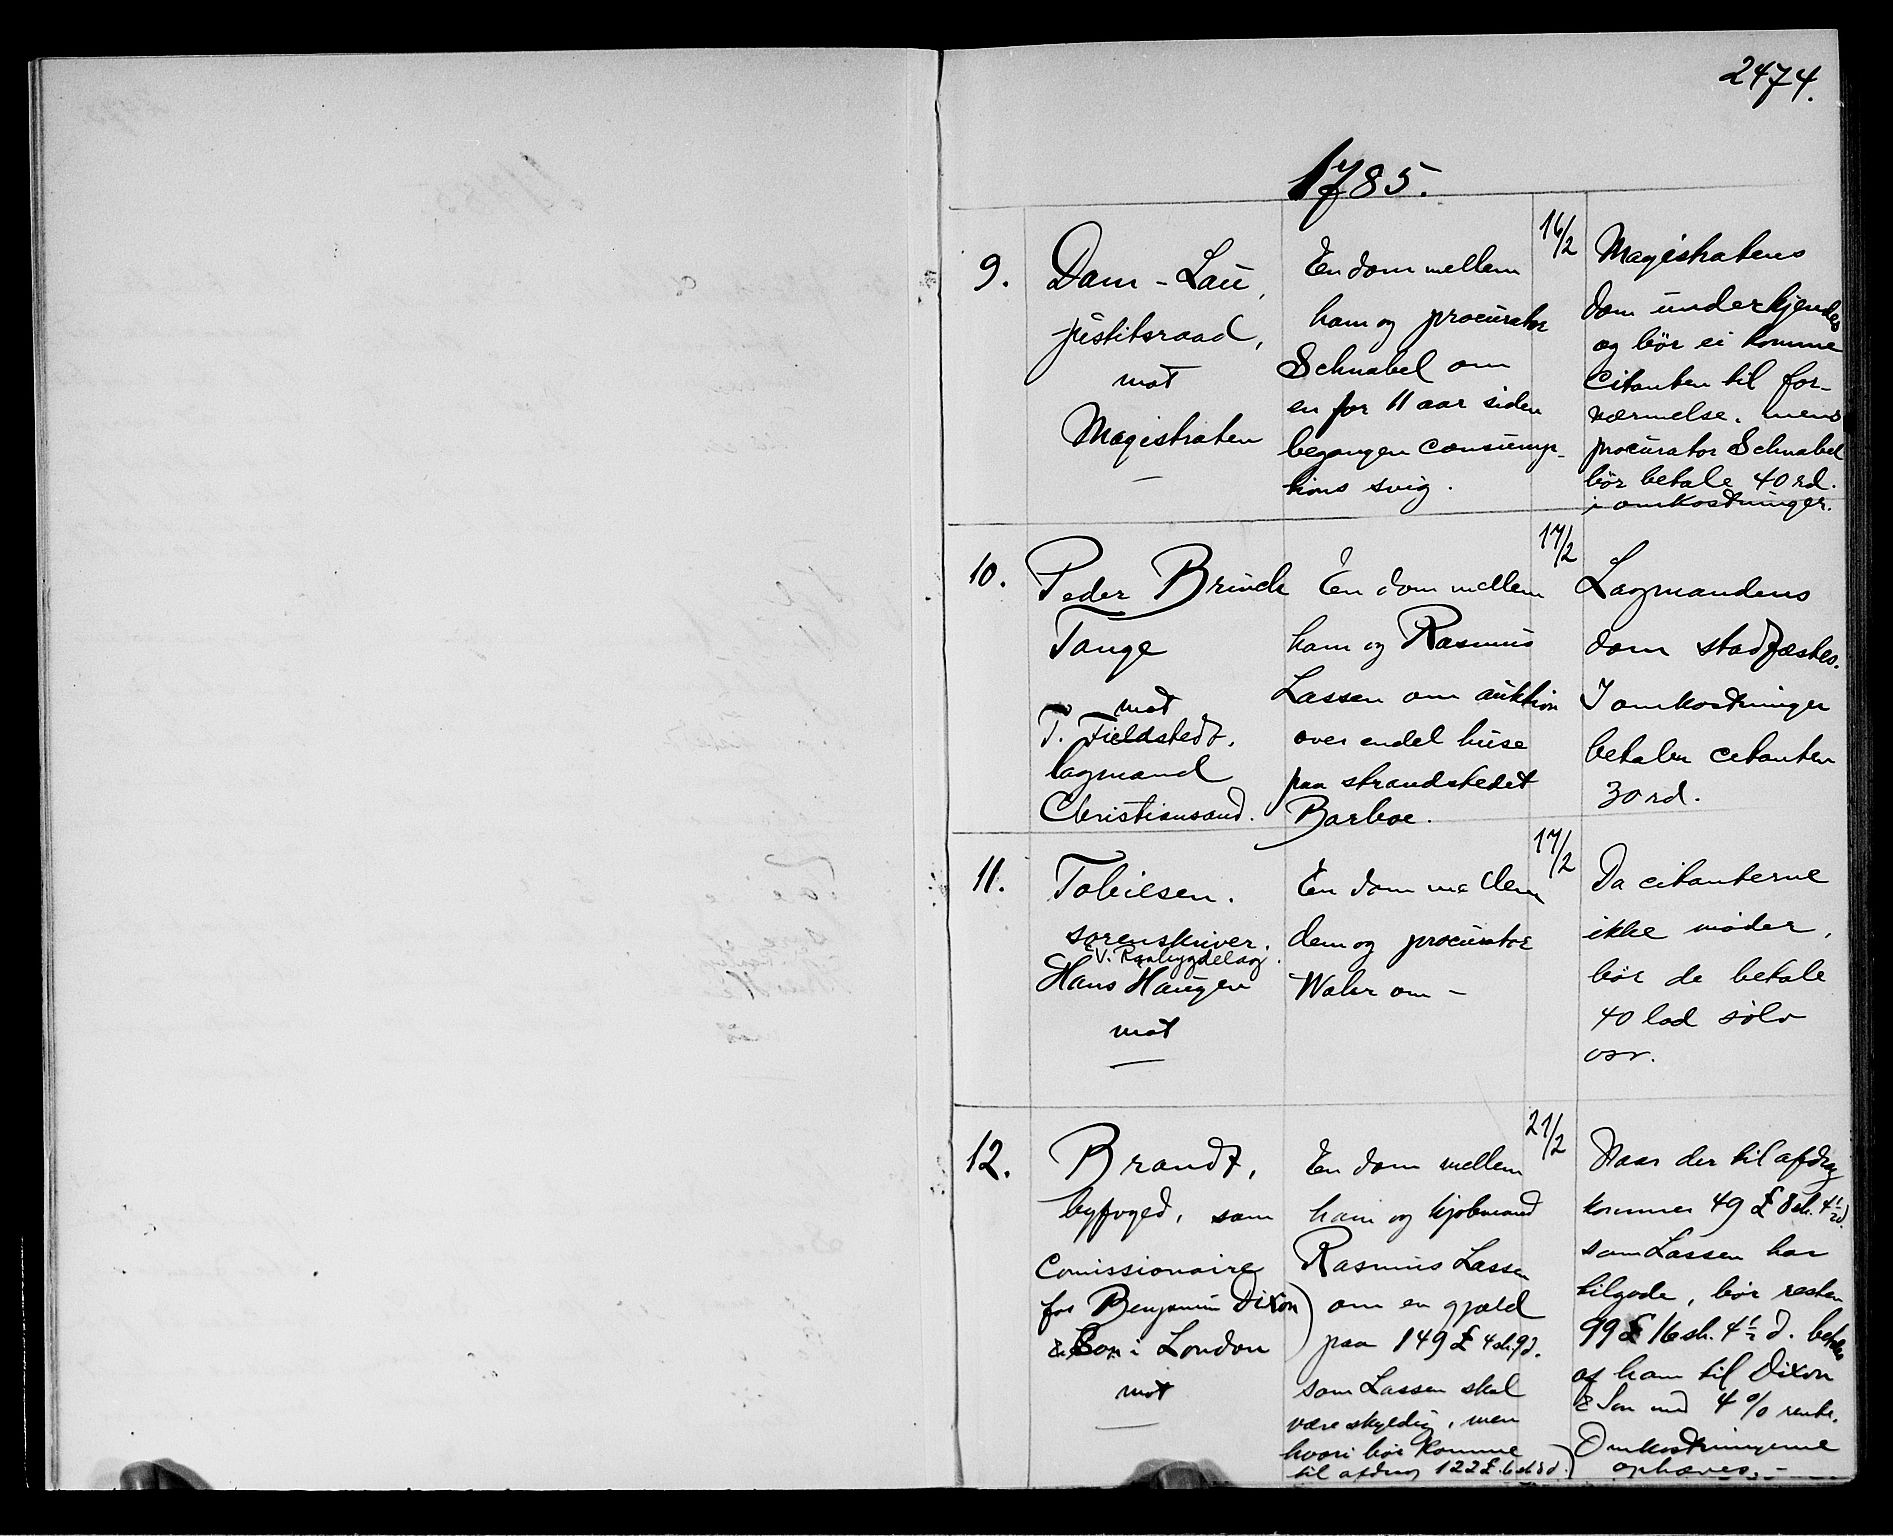 2474.
1785.
9.
Dam - Lau,
justitsraad,
mot
Magistraten
—
En dom mellem
ham og procurator
Schnabel om
en for 11 aar siden
begangen consump-
tions svig.
16/2
Magistratens
dom underkjendes
og bör ei komme
Citanten til for-
nærmelse. mens
procurator Schnabel
bör betale 40 rd.
i omkostninger.
10.
Peder Brinck
Tange
mot
T. Fieldstedt,
lagmand
Christiansand.
En dom mellem
ham og Rasmus
Lassen om auktion
over endel huse
paa strandstedet
Barboe.
17/2
Lagmandens
dom stadfæstes.
I omkostninger
betaler citanten
30 rd.
11.
Tobiesen.
sorenskriver.
V. Raabygdelag.
Hans Haugen
mot
—
En dom mellem
dem og procurator
Wahr om —
17/2
Da citanterne
ikke møder,
bör de betale
40 lod sølv
osv.
12.
Brandt,
byfoged, som
Comissionaire
for Benjamin Dixon
& Son i London
mot
—
En dom mellem
ham og kjøbmand
Rasmus Lassen
om en gjæld
paa 149 £ 4 sh. 9 d.
som Lassen skal
være skyldig, men
hvori bör komme
til afdrag 122 £. 6 sh 8 d.
21/2
Naar der til afdrag
kommer 49 £ 8 sh. 4 1/2 d.
som Lassen har
tilgode, bör resten
99 £ 16 sh. 4 1/2 d. betales
af ham til Dixon
& Son med 4 % rente.
Omkostningerne
ophæves. —